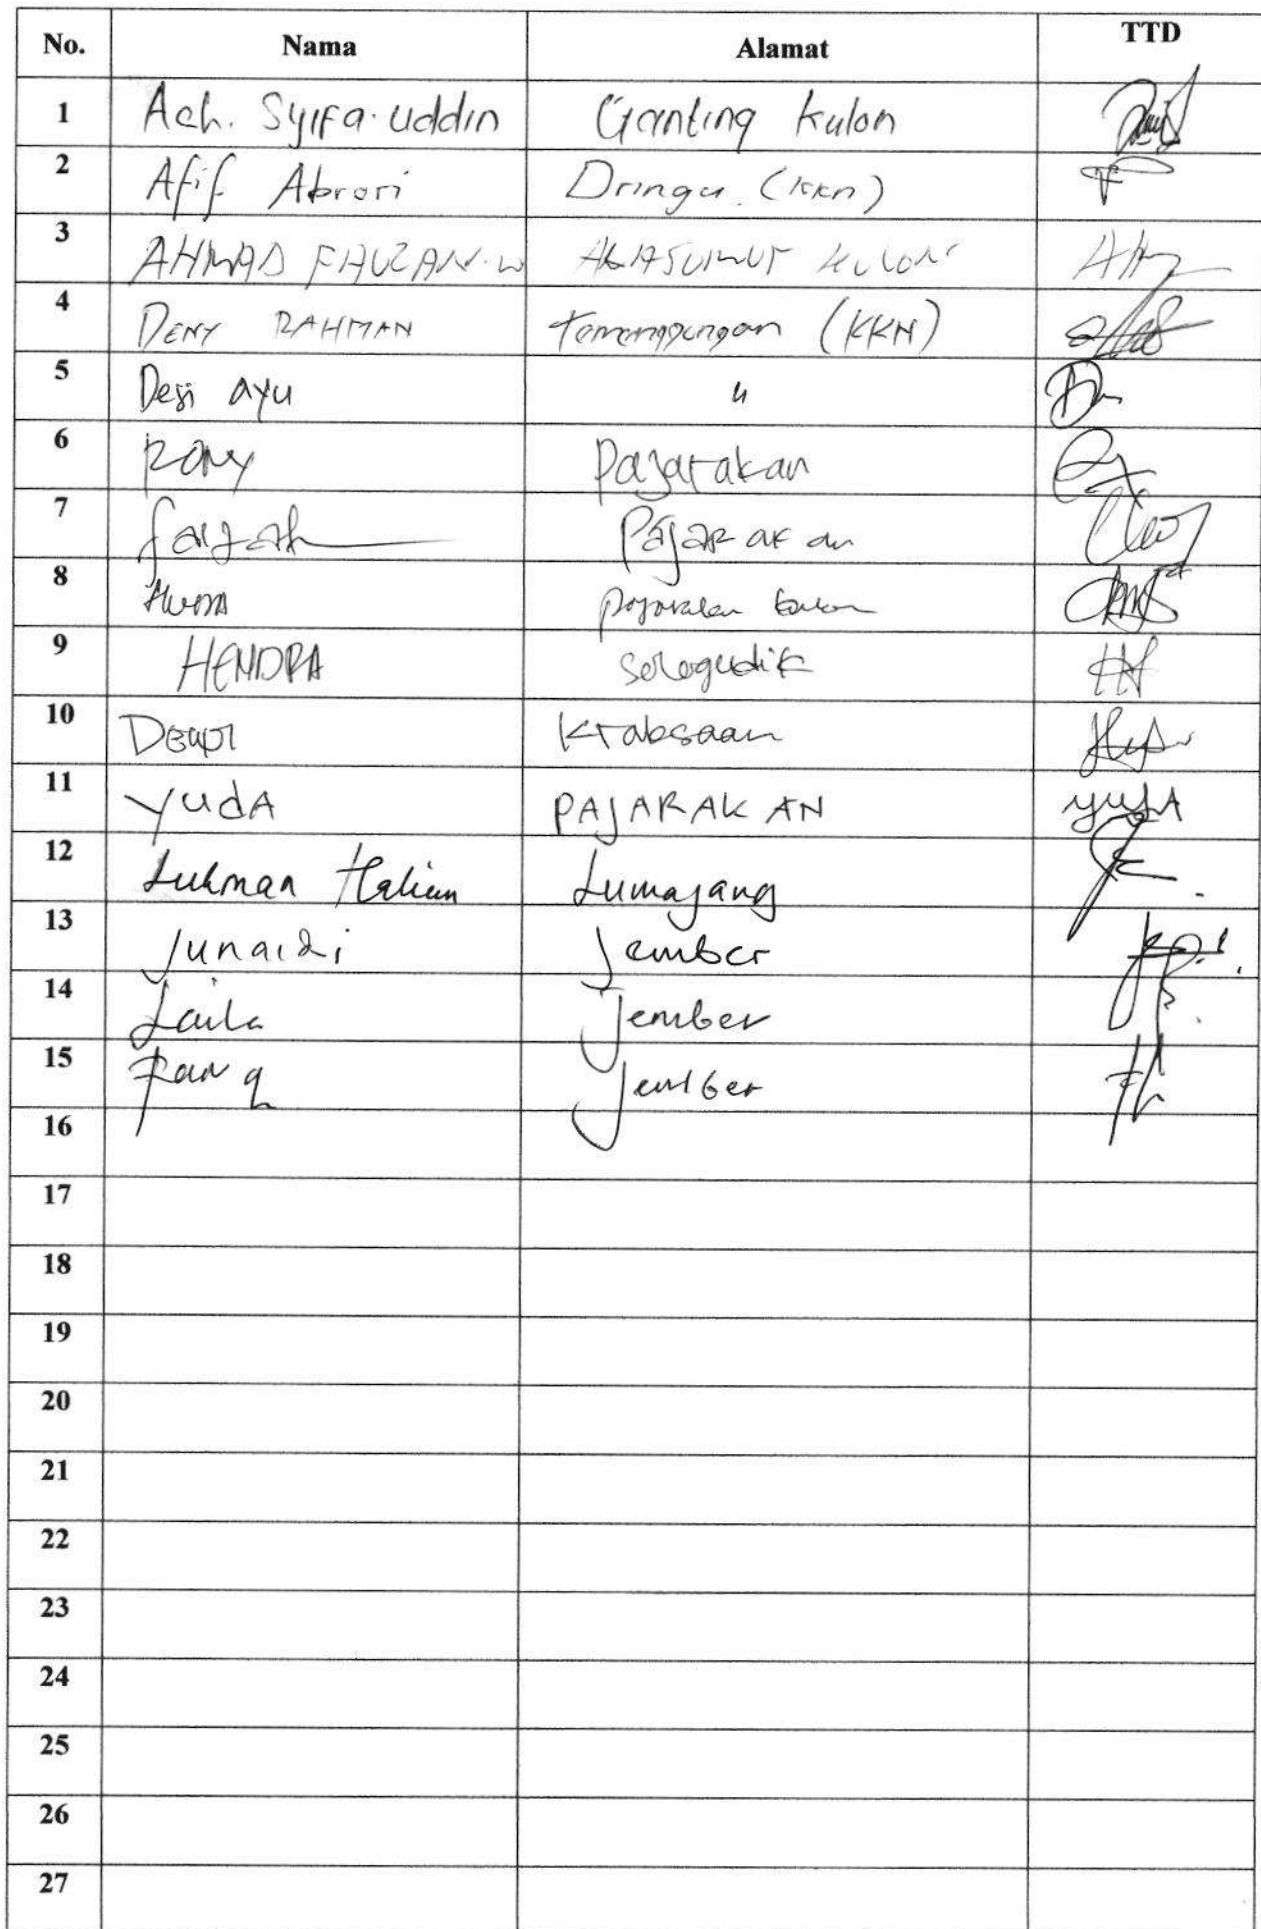 No. Nama Alamat TTD
1 Ach. Syifa'uddin Ganting Kulon
2 Afif Abrori Dringu (KKN)
3 AHMAD FAUZAN.W KULON
4 DENY RAHMAN Temenggungan (KKN)
5 Desi Ayu "
6 RONY Pajarakan
7 faizah Pajarakan
8 pajarakan kulon
9 HENDRA Selogudik
10 Dewi Kraksaan
11 YUdA PAJARAKAN
12 Lukman Hakim Lumajang
13 Junaidi Jember
14 Laila Jember
15 Jember
16
17
18
19
20
21
22
23
24
25
26
27